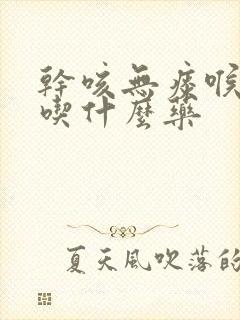 幹咳無痰喉
喫什麼藥
夏天風吹落的